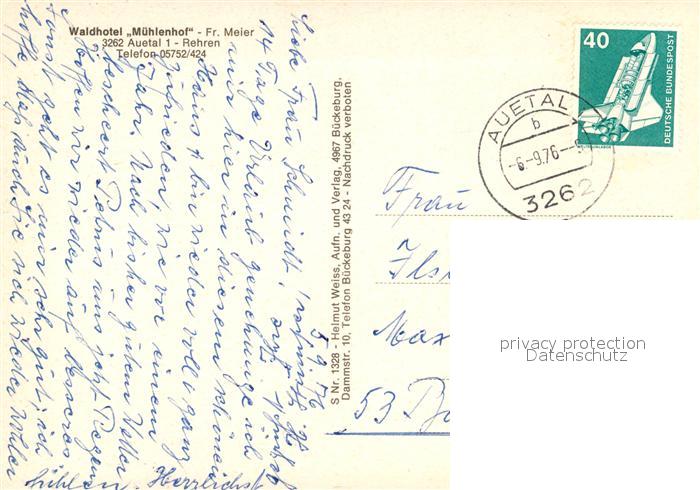 Waldhotel „Mühlenhof" - Fr. Meier
3262 Auetal 1 - Rehren
Telefon 05752/424
5.9.76
Liebe Frau Schmidt!
14 Tage Urlaub genehmige ich
mir hier in diesem schönen
Haus & bin wieder voll & ganz
zufrieden wie vor einem
Jahr. Nach bisher gutem Wetter
beschert Petrus uns jetzt Regen
Hoffen wir wieder auf Besseres
Sonst geht es mir sehr gut, ich
hoffe, daß auch Sie sich wieder wohler
fühlen. Herzlichst
S Nr. 1328 - Helmut Weiss, Aufn. und Verlag, 4967 Bückeburg,
Dammstr. 10, Telefon Bückeburg 43 24 - Nachdruck verboten
40
DEUTSCHE BUNDESPOST
AUETAL
b
-6.-9.76--9
3262
Frau
Ils
Max
53 B
privacy protection
Datenschutz